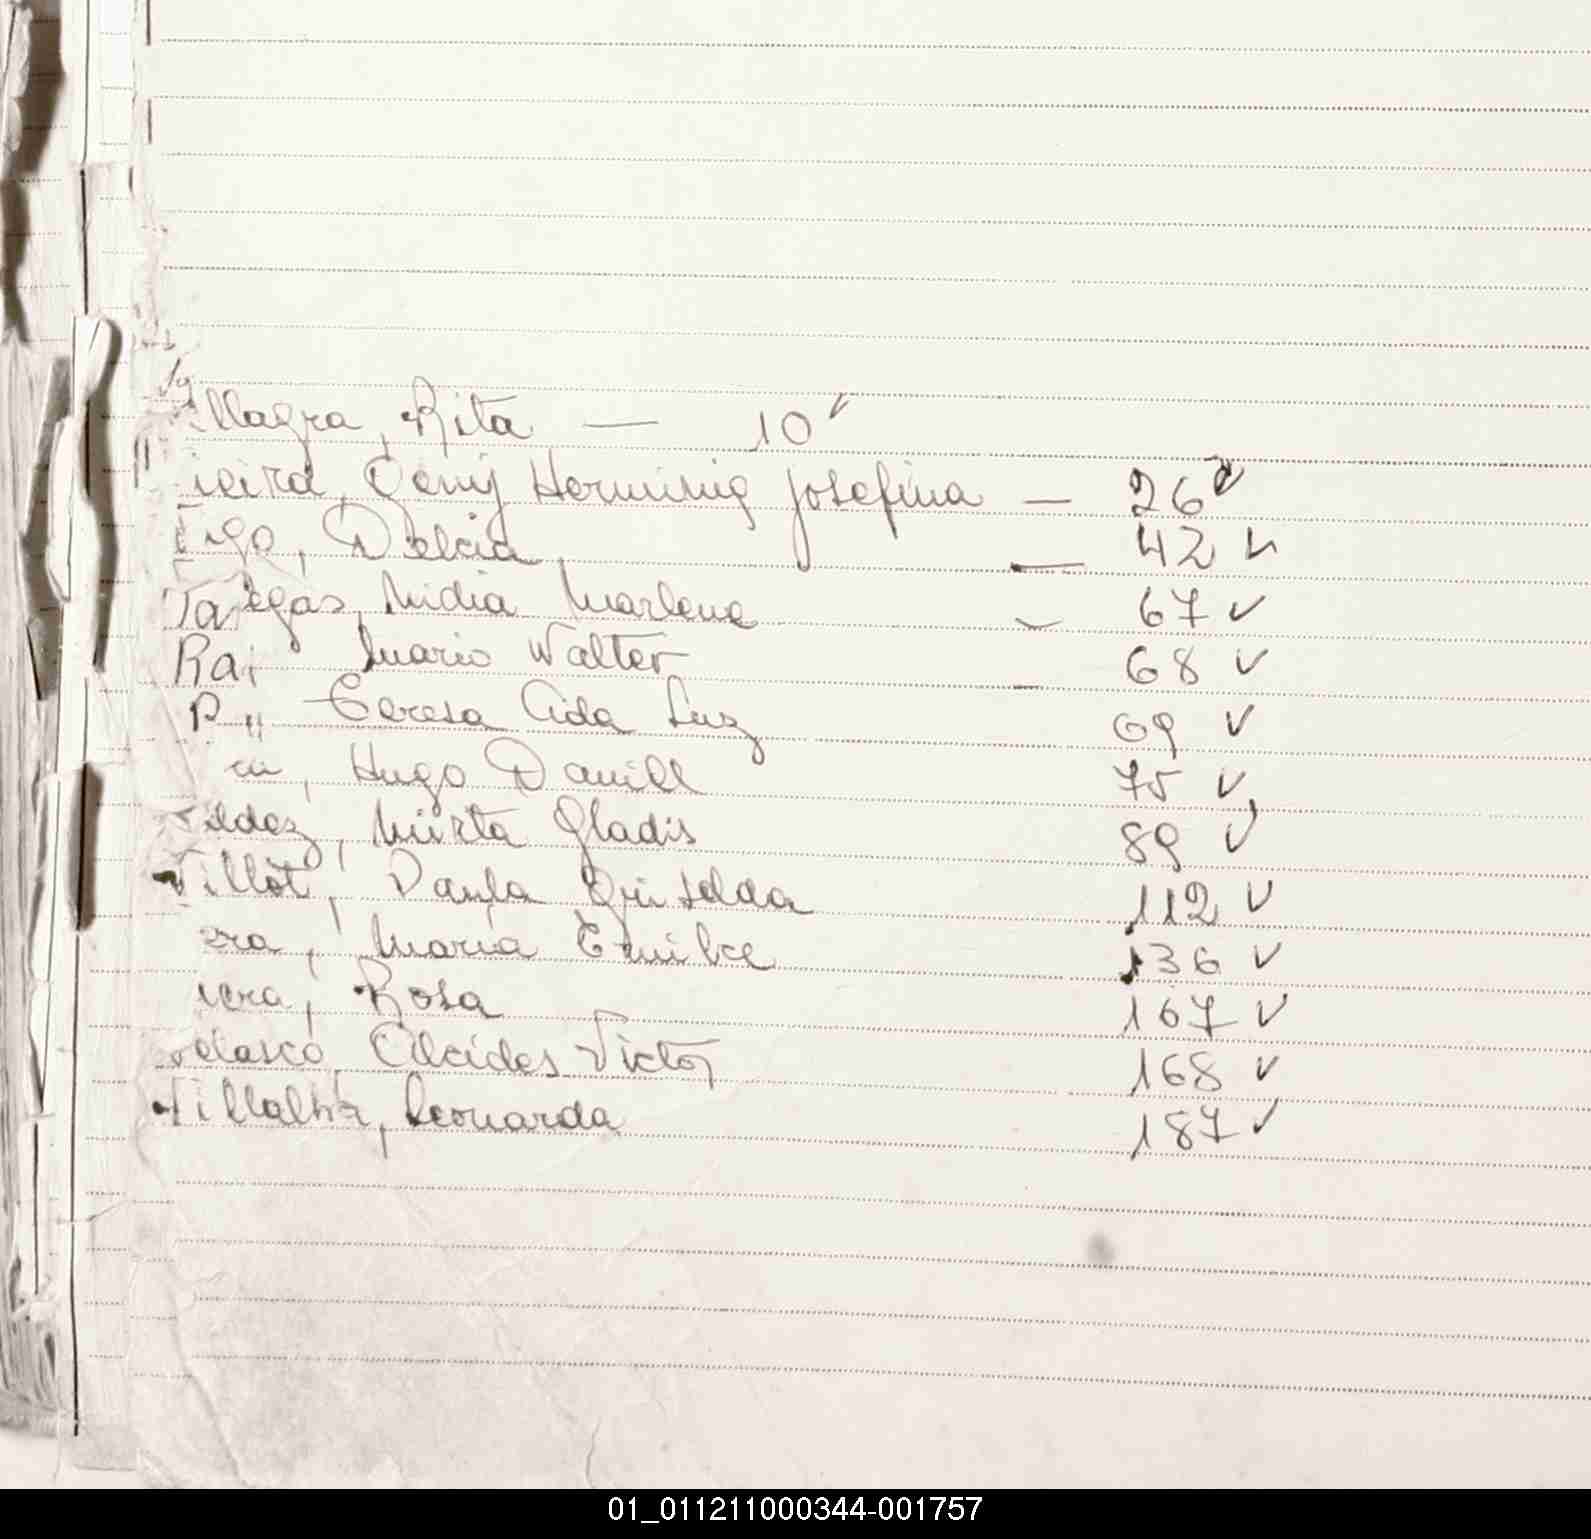 illagra, Rita — 10 ✓
ieira, Geny Herminig Josefina — 26 ✓
Delcia — 42 ✓
egas, Nidia Marlene — 67 ✓
Mario Walter — 68 ✓
" Teresa Aida Luz 69 ✓
Hugo Daniel 75 ✓
aldez, Mirta Gladis 89 ✓
Villot, Paula Griselda 112 ✓
era, Maria Emilce 136 ✓
iera, Rosa 167 ✓
Velasco, Alcides Victor 168 ✓
Villalba, Leonarda 187 ✓
01_011211000344-001757